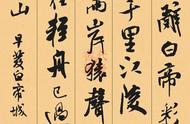 辭白帝彩
千里江陵
兩岸猿聲
住輕舟已過
山 早發白帝城